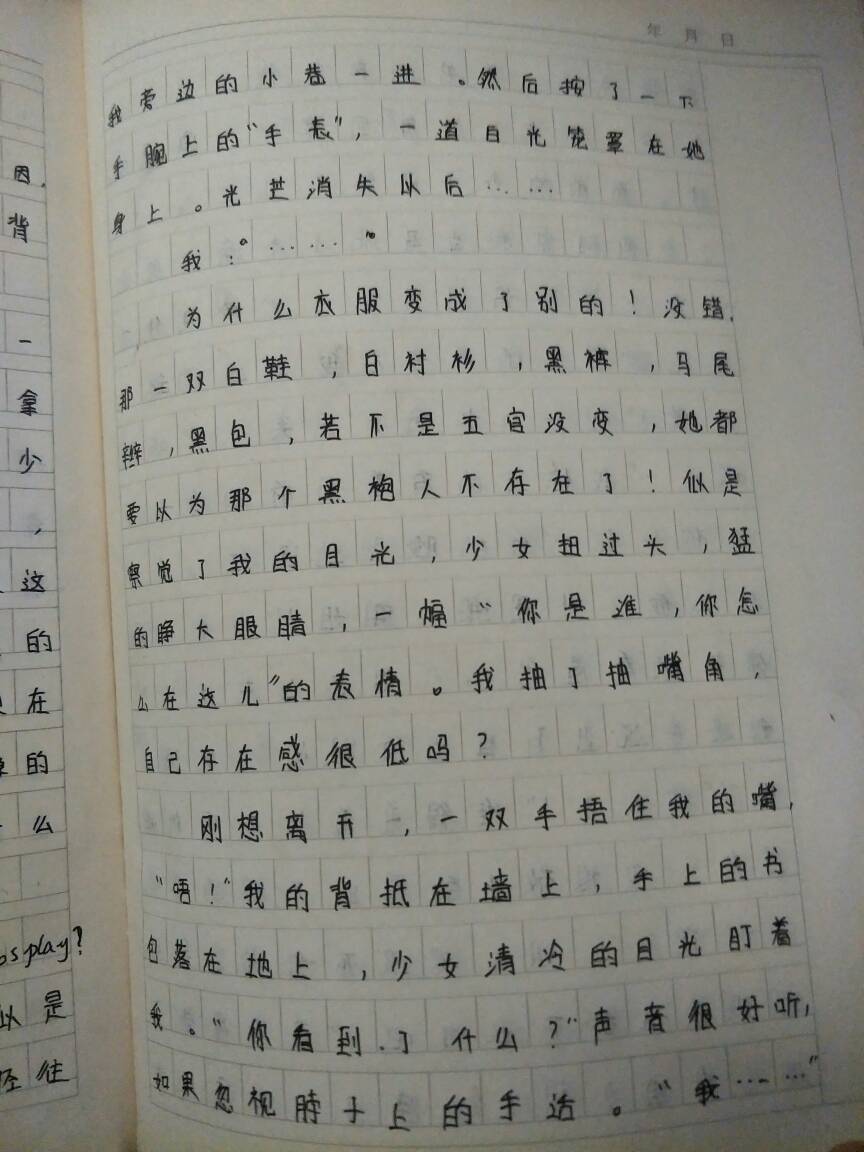 年 月 日
我旁边的小巷一进。然后按了一下
手腕上的“手表”，一道白光笼罩在她
身上。光芒消失以后……
我：“……”
为什么衣服变成了别的！没错，
那一双白鞋，白衬衫，黑裤，马尾
辫，黑包，若不是五官没变，她都
要以为那个黑袍人不存在了！似是
察觉了我的目光，少女扭过头，猛
的睁大眼睛，一幅“你是谁，你怎
么在这儿”的表情。我抽了抽嘴角，
自己存在感很低吗？
刚想离开，一双手捂住我的嘴，
“唔！”我的背抵在墙上，手上的书
包落在地上，少女清冷的目光盯着
我。“你看到了什么？”声音很好听，
如果忽视脖子上的手的话。“我……”
因，
背
一
拿
少
，
这
的
在
的
么
osplay？
以是
往